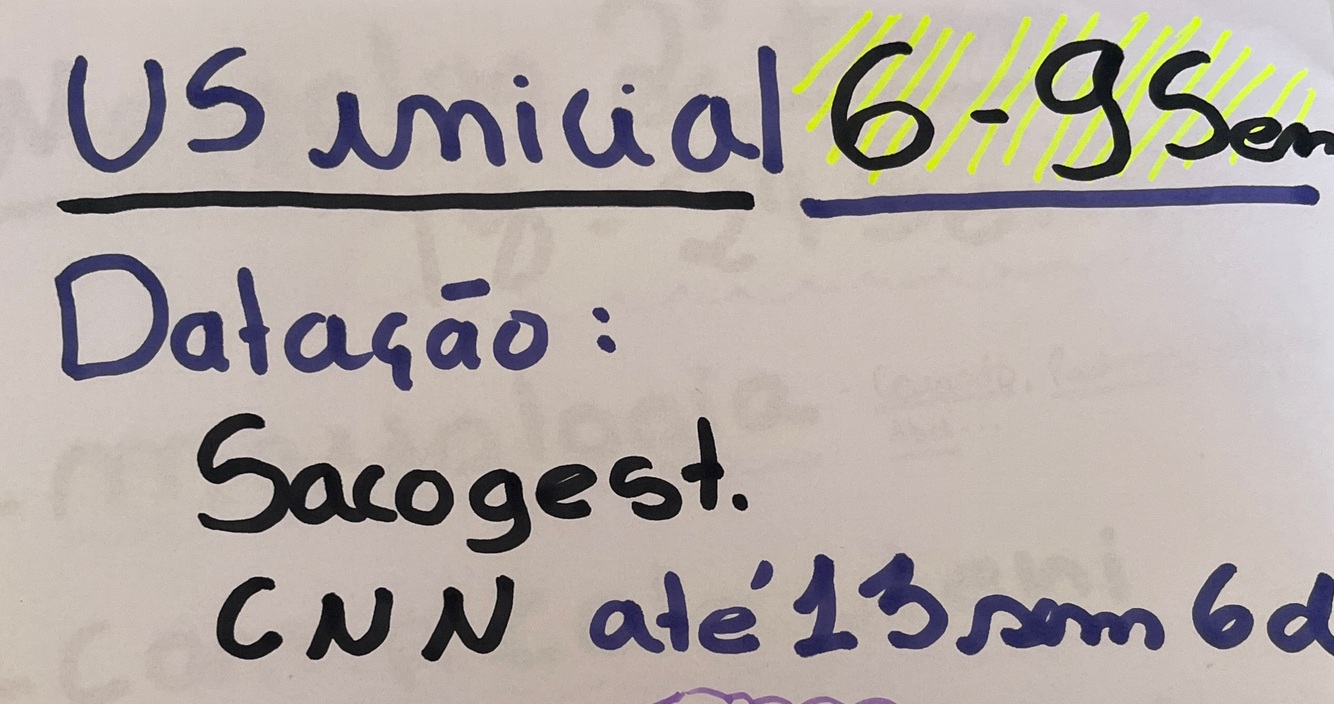 US inicial 6-9 Sem
Datação:
Saco gest.
CNN até 13 sem 6d